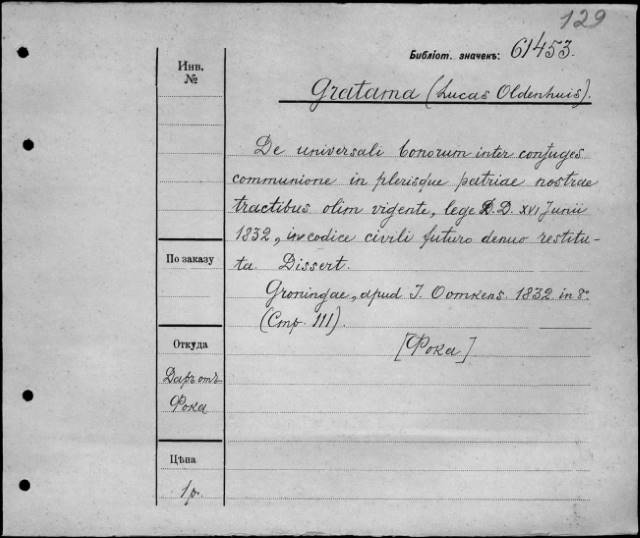 129
Библіот. значекъ: 61453.
Инв.
№
Gratama (Lucas Oldenhuis).
De universali bonorum inter conjuges
communione in plerisque patriae nostrae
tractibus olim vigente, lege D. D. XVI Junii
1832, in codice civili futuro denuo restitu-
ta. Dissert.
Groningae, apud J. Oomkens. 1832. in 8º
(Стр. 111).
[Фока]
По заказу
Откуда
Даръ отъ
Фока
Цѣна
1 р.